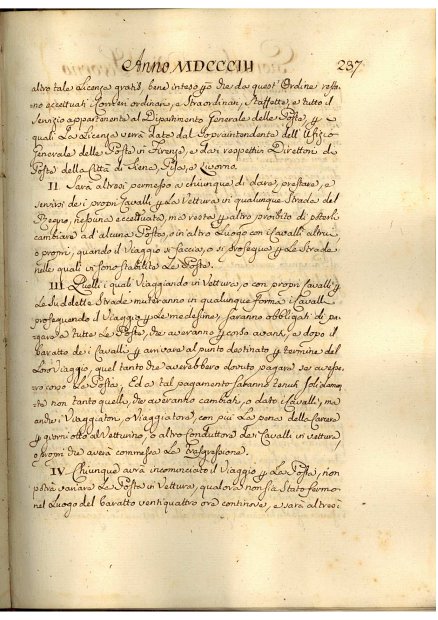 Anno MDCCCIII 237.
altro tale Licenza gratis, bene inteso però che da quest'Ordine resta-
no eccettuati i Corrieri ordinari, e Straordinari, Staffette, e tutto il
Servizio appartenente al Dipartimento Generale delle Poste, per
quali La Licenza verrà data dal Sopraintendente dell'Ufizio
Generale delle Poste in Firenze, e dai respettivi Direttori di
Poste della Città di Siena, Pisa, e Livorno.
II. Sarà altresì permesso a chiunque di dare, prestare, e
servirsi dei propri Cavalli per La Vettura in qualunque Strada del
Regno, nessuna eccettuata, ma resta per altro proibito di potersi
cambiare ad alcuna Posta, o in altro Luogo con i Cavalli altrui
o propri, quando il Viaggio si faccia, o si prosegua per Le Strade
nelle quali vi sono stabilite Le Poste.
III. Quelli i quali Viaggiando in Vettura, o con propri Cavalli per
Le Suddette Strade muteranno in qualunque forma i Cavalli
proseguendo il Viaggio per Le medesime, saranno obbligati di pa-
gare a tutte Le Poste, che averanno corso avanti, e dopo il
baratto dei Cavalli per arrivare al punto destinato per termine del
Loro Viaggio, quel tanto che averebbero dovuto pagare se avesse-
ro corso La Posta, Ed a tal pagamento saranno tenuti solidamen-
te non tanto quello, che averanno cambiati, o dato i Cavalli, ma
anche i Viaggiatori, o Viaggiatore, con più La pena della Carcere
per giorni otto al Vetturino, o altro Conduttore dei Cavalli in vettura,
o propri che averà commessa La trasgressione.
IV. Chiunque avrà incominciato il Viaggio per La Posta, non
potrà variare La Posta in Vettura, qualora non sia Stato fermo
nel Luogo del baratto ventiquattro ore continove, e sarà altresì